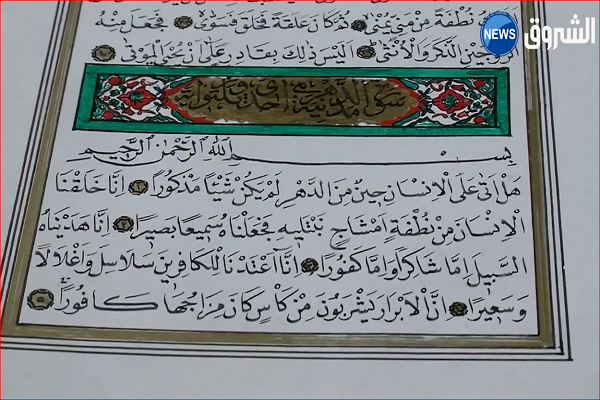 الشروق
NEWS
نطفة من مني يمنى ثم كان علقة فخلق فسوى فجعل منه
الزوجين الذكر والانثى اليس ذلك بقادر على ان يحيي الموتى
بسم الله الرحمن الرحيم
هَلْ اَتٰى عَلَى الْاِنْسَانِ حِينٌ مِنَ الدَّهْرِ لَمْ يَكُنْ شَيْئًا مَذْكُورًا ١ اِنَّا خَلَقْنَا
الْاِنْسَانَ مِنْ نُطْفَةٍ اَمْشَاجٍ نَبْتَلِيهِ فَجَعَلْنَاهُ سَمِيعًا بَصِيرًا ٢ اِنَّا هَدَيْنَاهُ
السَّبِيلَ اِمَّا شَاكِرًا وَاِمَّا كَفُورًا ٣ اِنَّا اَعْتَدْنَا لِلْكَافِرِينَ سَلَاسِلَ وَاَغْلَالًا
وَسَعِيرًا ٤ اِنَّ الْاَبْرَارَ يَشْرَبُونَ مِنْ كَأْسٍ كَانَ مِزَاجُهَا كَافُورًا ٥